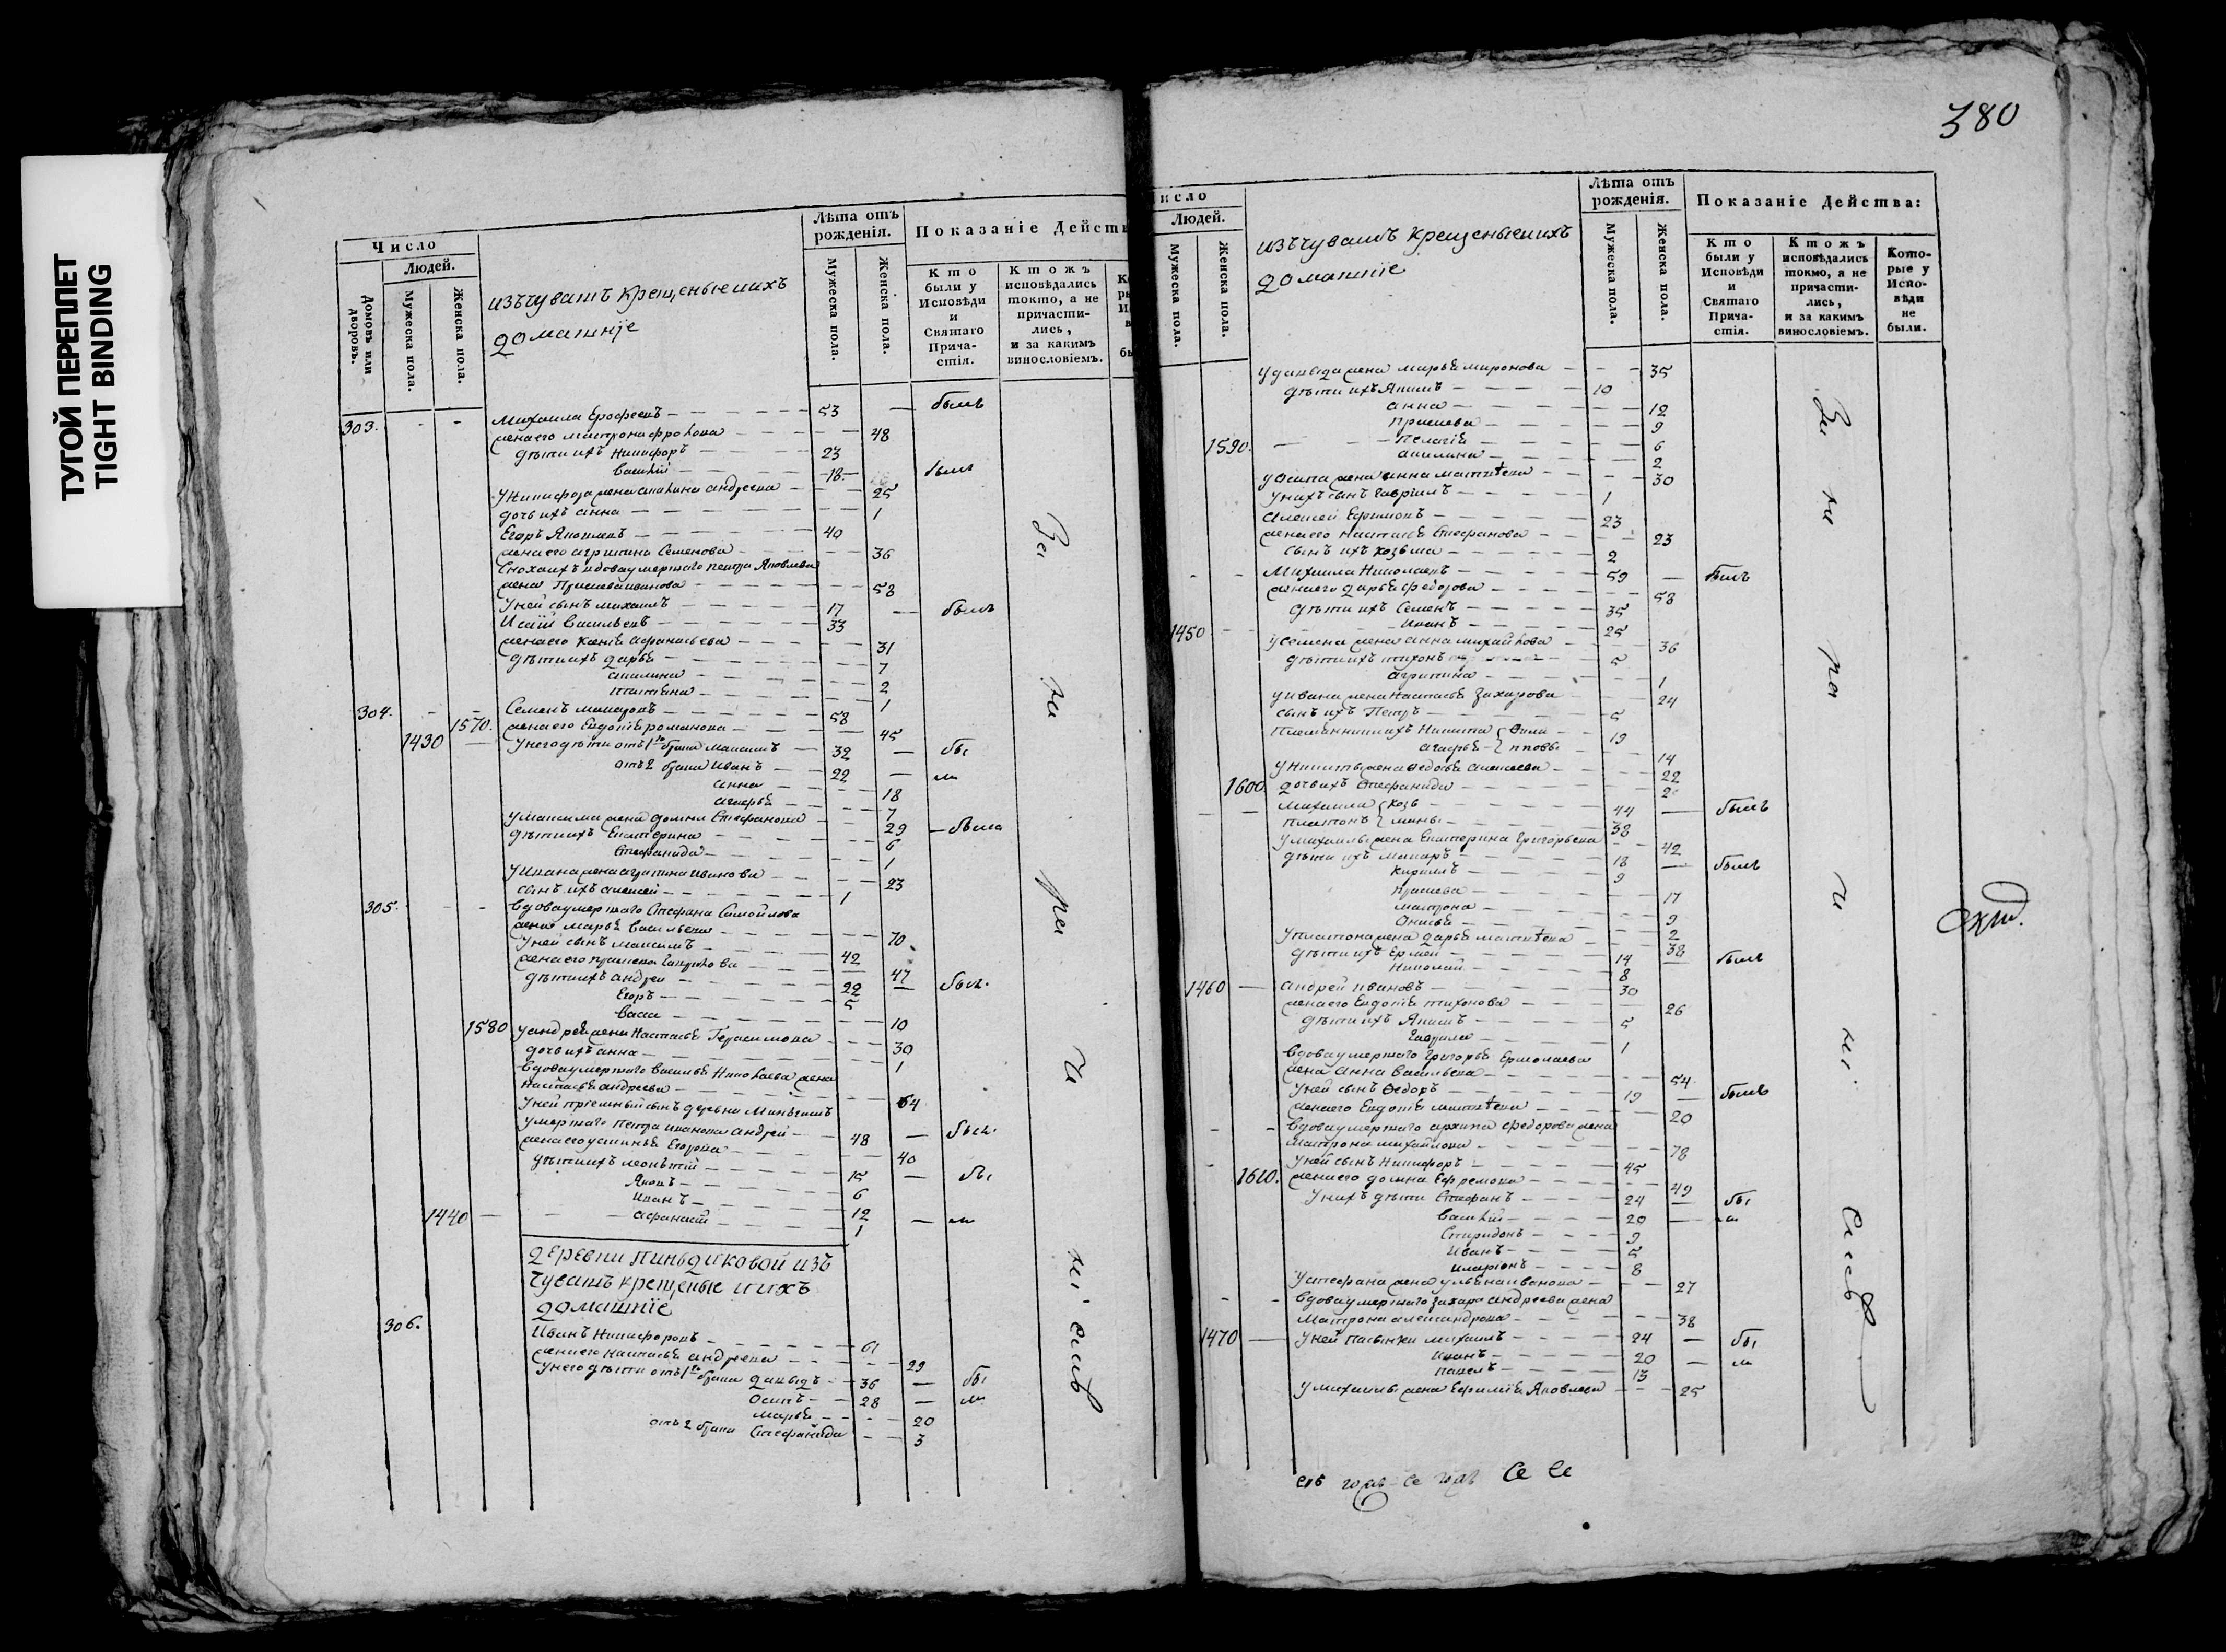 ТУГОЙ ПЕРЕПЛЕТ
TIGHT BINDING
Число
Людей.
Домовъ или дворовъ.
Мужеска пола.
Женска пола.
изъ чувашъ крещеные и ихъ
домашнїе
Лѣта отъ рожденія.
Мужеска пола.
Женска пола.
Показаніе Действ
Кто были у Исповѣди и Святаго Прича-стія.
Ктожъ исповѣдались токмо, а не причасти-лись, и за какимъ винословіемъ.
303. Михаила Ерофеевъ 53 былъ
жена его матрона фролова 48
дѣти ихъ Никифоръ 23
Василій 18 былъ
у Никифора жена акилина андреева 25
дочь ихъ анна 1
Егоръ Яковлевъ 40
жена его агрипина Семенова 36
Сноха ихъ вдова умершаго петра Яковлева
жена Прасковья иванова 58
У ней сынъ михаилъ 17 былъ
Исаїй Васильевъ 33
жена его Ксенїя афанасьева 31
дѣти ихъ дарья 7
акилина 2
татьяна 1
304. Семенъ макаровъ 58
1570. жена его Евдотїя романова 45
1430 У него дѣти отъ 1го брака Максимъ 32 бы
отъ 2 брака Иванъ 22 ли
анна 18
агафья 7
У максима жена домна Стефанова 29 была
дѣти ихъ Екатерина 6
Стефанида 1
У Ивана жена агрипина Иванова 23
сынъ ихъ алексей 1
305. Вдова умершаго Стефана Самойлова
жена марья Васильева 70
У ней сынъ максимъ 42
жена его прасковья гаврилова 47
дѣти ихъ андреи 22 былъ.
Егоръ 5
Васса 10
1580 у андрея жена Настасья Герасимова 30
дочь ихъ анна 1
Вдова умершаго Василья Николаева жена
настасья андреева 64
У ней прїемный сынъ деревни
умершаго петра иванова андрей 48 былъ.
жена его устинья Егорова 40
дѣти ихъ леонътїй 15 бы
Яковъ 6
Иванъ 12
1440 афанасїй 1 ли
деревни Пиньдиковой изъ
чувашъ крещеные и ихъ
домашнїе
306. Иванъ Никифоровъ 61
жена его Настасья андреева 29
У него дѣти отъ 1го брака давыдъ 36 бы
Осипъ 28 ли
марья 20
отъ 2 брака Стефанида 3
380
исло
Людей.
Мужеска пола.
Женска пола.
изъ чувашъ крещеные и ихъ
домашнїе
Лѣта отъ рожденія.
Мужеска пола.
Женска пола.
Показаніе Действа:
Кто были у Исповѣди и Святаго Прича-стія.
Ктожъ исповѣдались токмо, а не причасти-лись, и за какимъ винословіемъ.
Кото-рые у Испо-вѣди не были.
У давыда жена марья миронова 35
дѣти ихъ Якимъ 10
анна 12
Прасковья 9
1590. Пелагїя 6
акилина 2
у Осипа жена анна матвѣева 30
У нихъ сынъ гаврїилъ 1
алексей Ефимовъ 23
жена его Настасья Стефанова 23
сынъ ихъ козьма 2
Михаила Николаевъ 59 былъ
жена его дарья федорова 58
дѣти ихъ Семенъ 35
1450 иванъ 25
у Семена жена анна михайлова 36
дѣти ихъ тихонъ 5
агрипина 1
у Ивана жена Настасья Захарова 24
сынъ ихъ Петръ 5
Племянники ихъ Никита 19
агафья 14
У Никиты жена федосья алексеева 22
1600. дочь ихъ Стефанида
Михаила козь 44 былъ
платонъ мины 38
У михаилы жена Екатерина Григорьева 42
дѣти ихъ макаръ 18 былъ
Кирилъ 9
прасковья 17
матрона 9
Онисья 2
У платона жена дарья матвѣева 38
дѣти ихъ Ермей 14 былъ
Николай 8
1460 андрей ивановъ 30
жена его Евдотїя тихонова 26
дѣти ихъ Якимъ 5
гаврила 1
Вдова умершаго Григорья Ермолаева
жена анна Васильева 54
У ней сынъ Федоръ 19 былъ
жена его Евдотїя матвѣева 20
Вдова умершаго архипа федорова жена
матрона михайлова 78
У ней сынъ Никифоръ 45
1610. жена его домна Ефремова 49
У нихъ дѣти Стефанъ 24 бы
Василїй 20 ли
Спиридонъ 9
Иванъ 5
иларїонъ 8
У стефана жена ульяна иванова 27
Вдова умершаго захара андреева жена
матрона александрова 38
1470 У ней пасынки михаилъ 24 бы
иванъ 20 ли
павелъ 13
У михаилы жена Ефимїя Яковлева 25